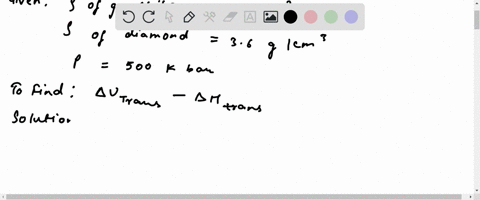 Given: ρ of g
ρ of diamond = 3.6 g/cm³
P = 500 K bar
To find: ΔU_Trans − ΔH_trans
Solution